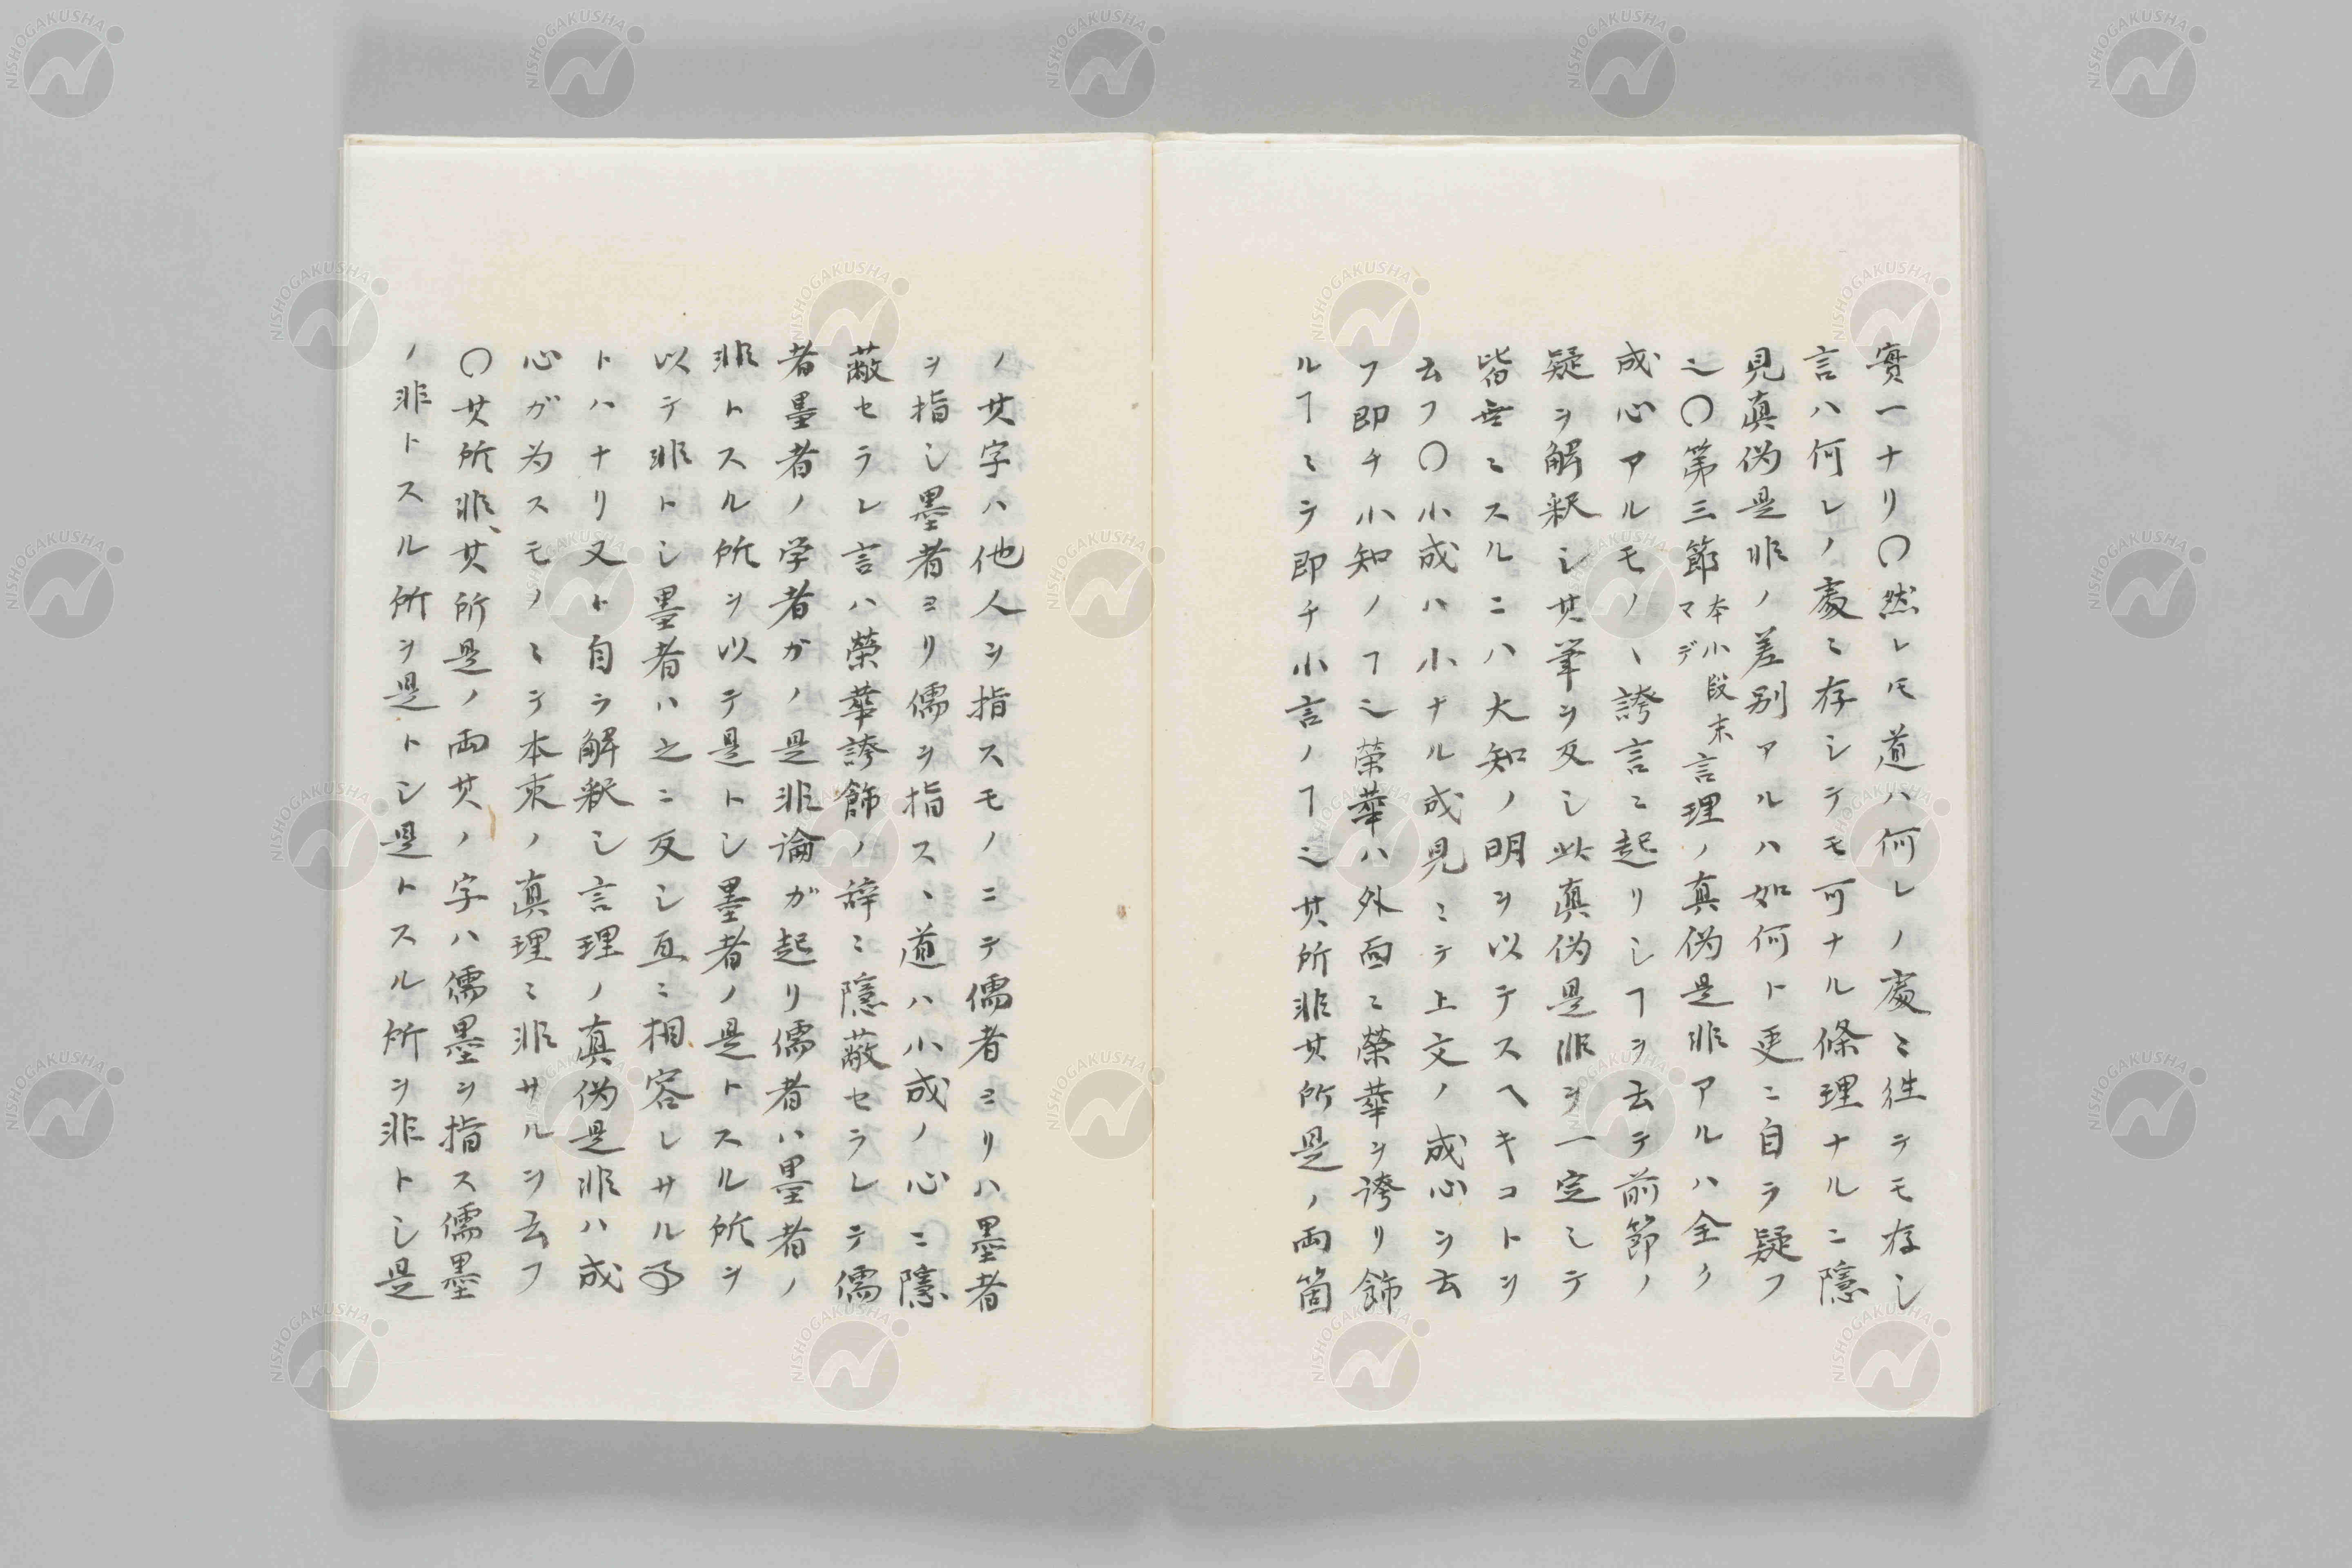 實一ナリ〇然レ𪜈道ハ何レノ處ニ徃テモ存シ
言ハ何レノ處ニ存シテモ可ナル條理ナルニ隱
見真偽是非ノ差別アルハ如何ト更ニ自ラ疑フ
也〇第三節本小段末マデ言理ノ真偽是非アルハ全ク
成心アルモノヽ誇言ニ起リシヿヲ云テ前節ノ
疑ヲ解釈シ其筆ヲ反シ此真偽是非ヲ一定シテ
皆無ニスルニハ大知ノ明ヲ以テスヘキコトヲ
云フ〇小成ハ小ナル成見ニテ上文ノ成心ヲ云
フ即チ小知ノヿ也榮華ハ外面ニ榮華ヲ誇リ飾
ルヿニテ即チ小言ノヿ也其所非其所是ノ両箇
ノ其字ハ他人ヲ指スモノニテ儒者ヨリハ墨者
ヲ指シ墨者ヨリ儒ヲ指スヽ道ハ小成ノ心ニ隱
蔽セラレ言ハ榮華誇飾ノ辞ニ隱蔽セラレテ儒
者墨者ノ学者ガノ是非論が起リ儒者ハ墨者ノ
非トスル所ヲ以テ是トシ墨者ノ是トスル所ヲ
以テ非トシ墨者ハ之ニ反シ互ニ相容レサルヿ
トハナリ又ト自ラ解釈シ言理ノ真偽是非ハ成
心ガ為スモノニテ本來ノ真理ニ非サルヲ云フ
〇其所非、其所是ノ両其ノ字ハ儒墨ヲ指ス儒墨
ノ非トスル所ヲ是トシ是トスル所ヲ非トシ是